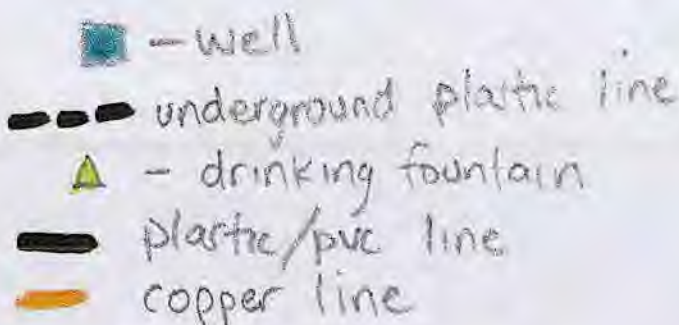 - well
underground plastic line
- drinking fountain
plastic/pvc line
copper line